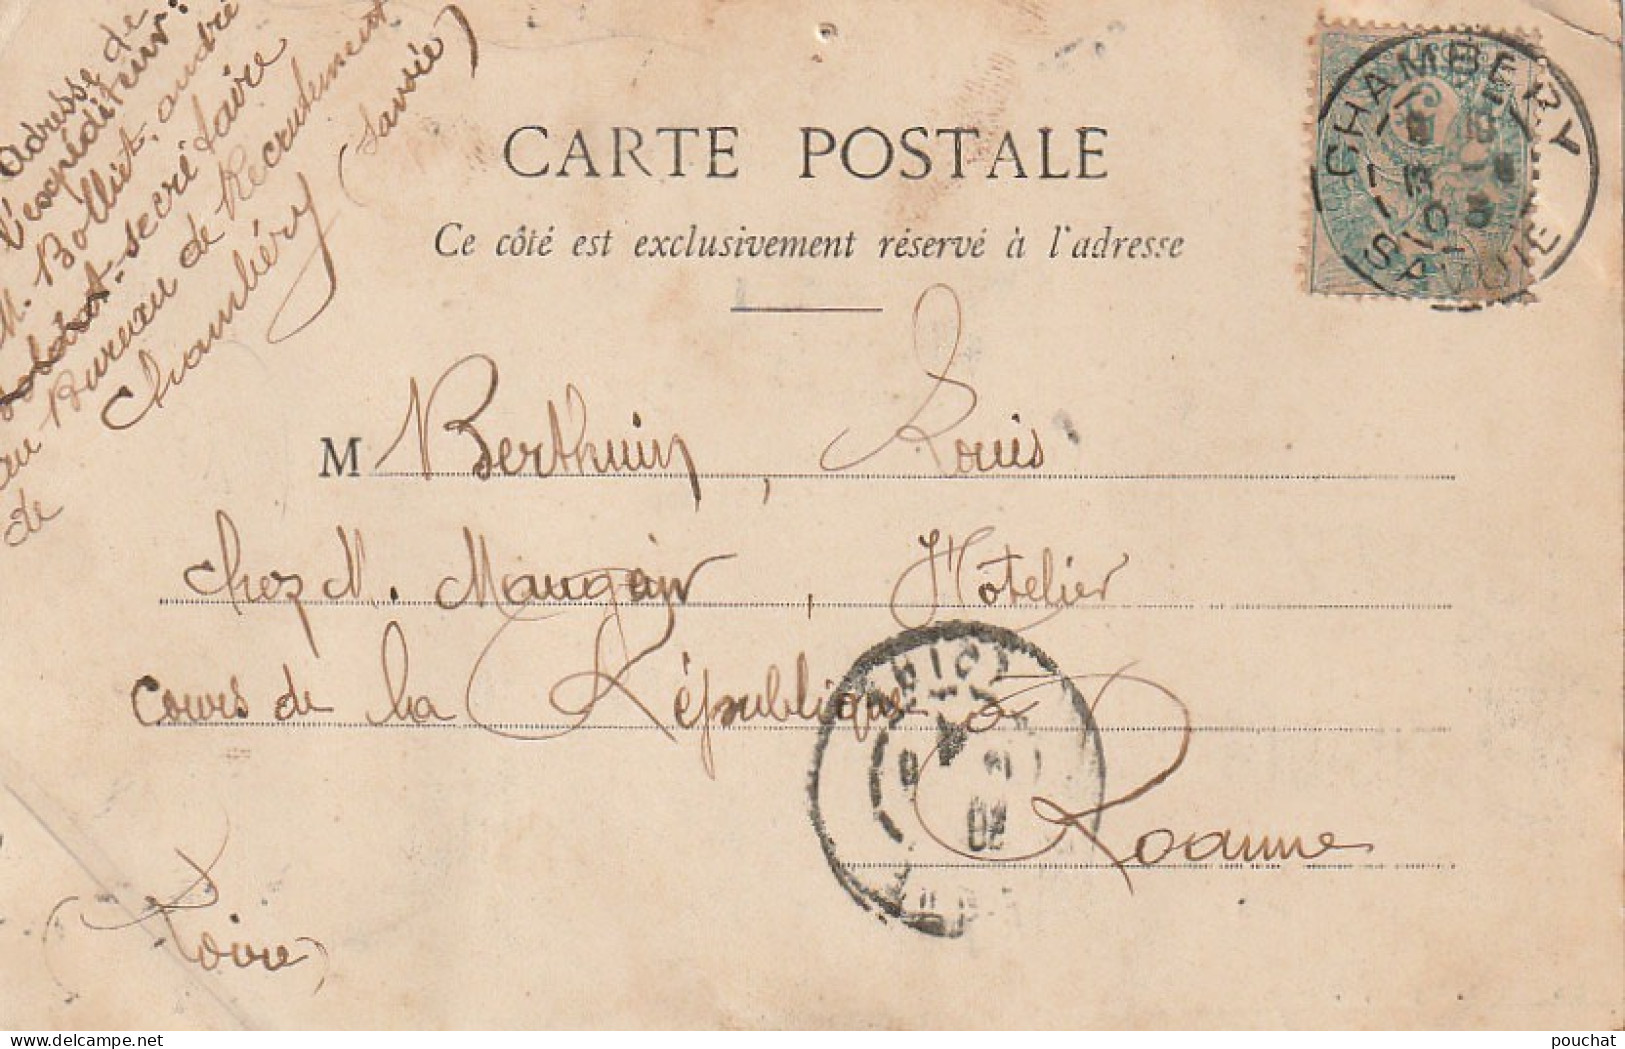 adresse de
l'expéditeur:
M. Bolliet. andré
soldat-secrétaire
au Bureau de Recrutement
de Chambéry (Savoie)
CARTE POSTALE
Ce côté est exclusivement réservé à l'adresse
CHAMBERY
SAVOIE
M Berthuin, Louis
chez M. Maugein, Hôtelier
Cours de la République à
Roanne
(Loire)
pouchat